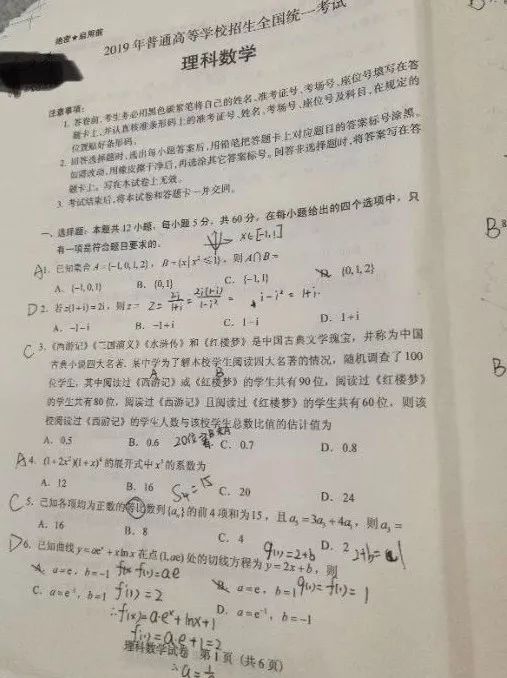 绝密★启用前
2019年普通高等学校招生全国统一考试
理科数学
注意事项:
1. 答卷前,考生务必用黑色碳素笔将自己的姓名、准考证号、考场号、座位号填写在答
题卡上,并认真核准条形码上的准考证号、姓名、考场号、座位号及科目,在规定的
位置贴好条形码。
2. 回答选择题时,选出每小题答案后,用铅笔把答题卡上对应题目的答案标号涂黑。
如需改动,用橡皮擦干净后,再选涂其它答案标号。回答非选择题时,将答案写在答
题卡上。写在本试卷上无效。
3. 考试结束后,将本试卷和答题卡一并交回。
一、选择题:本题共12小题,每小题5分,共60分,在每小题给出的四个选项中,只
有一项是符合题目要求的。
x∈[-1,1]
A 1. 已知集合A={-1,0,1,2}, B={x|x²≤1}, 则A∩B=
A. {-1,0,1} B. {0,1} C. {-1,1} D. {0,1,2}
D 2. 若z(1+i)=2i, 则z= z=2i/1+i=2i(1-i)/1-i²= i-i²=1+i
A. -1-i B. -1+i C. 1-i D. 1+i
C 3. 《西游记》《三国演义》《水浒传》和《红楼梦》是中国古典文学瑰宝,并称为中国
古典小说四大名著. 某中学为了解本校学生阅读四大名著的情况,随机调查了100
A B
位学生,其中阅读过《西游记》或《红楼梦》的学生共有90位,阅读过《红楼梦》
的学生共有80位,阅读过《西游记》且阅读过《红楼梦》的学生共有60位,则该
校阅读过《西游记》的学生人数与该校学生总数比值的估计值为
A. 0.5 B. 0.6 20位 C. 0.7 D. 0.8
A 4. (1+2x²)(1+x)⁴的展开式中x³的系数为
A. 12 B. 16 C. 20 D. 24
S₄=15
C 5. 已知各项均为正数的等比数列{aₙ}的前4项和为15, 且a₅=3a₃+4a₁, 则a₃=
A. 16 B. 8 C. 4 D. 2
g(1)=2+b 2+b=1
D 6. 已知曲线y=aeˣ+xlnx在点(1,ae)处的切线方程为y=2x+b, 则
A. a=e, b=-1 f(1)=ae B. a=e, b=1 g(1)=f(1)=1
C. a=e⁻¹, b=1 f'(1)=2 D. a=e⁻¹, b=-1
∴f'(x)=a·eˣ+lnx+1
f'(1)=a·e+1=2
理科数学试卷 第1页(共6页)
∴a=
B
B